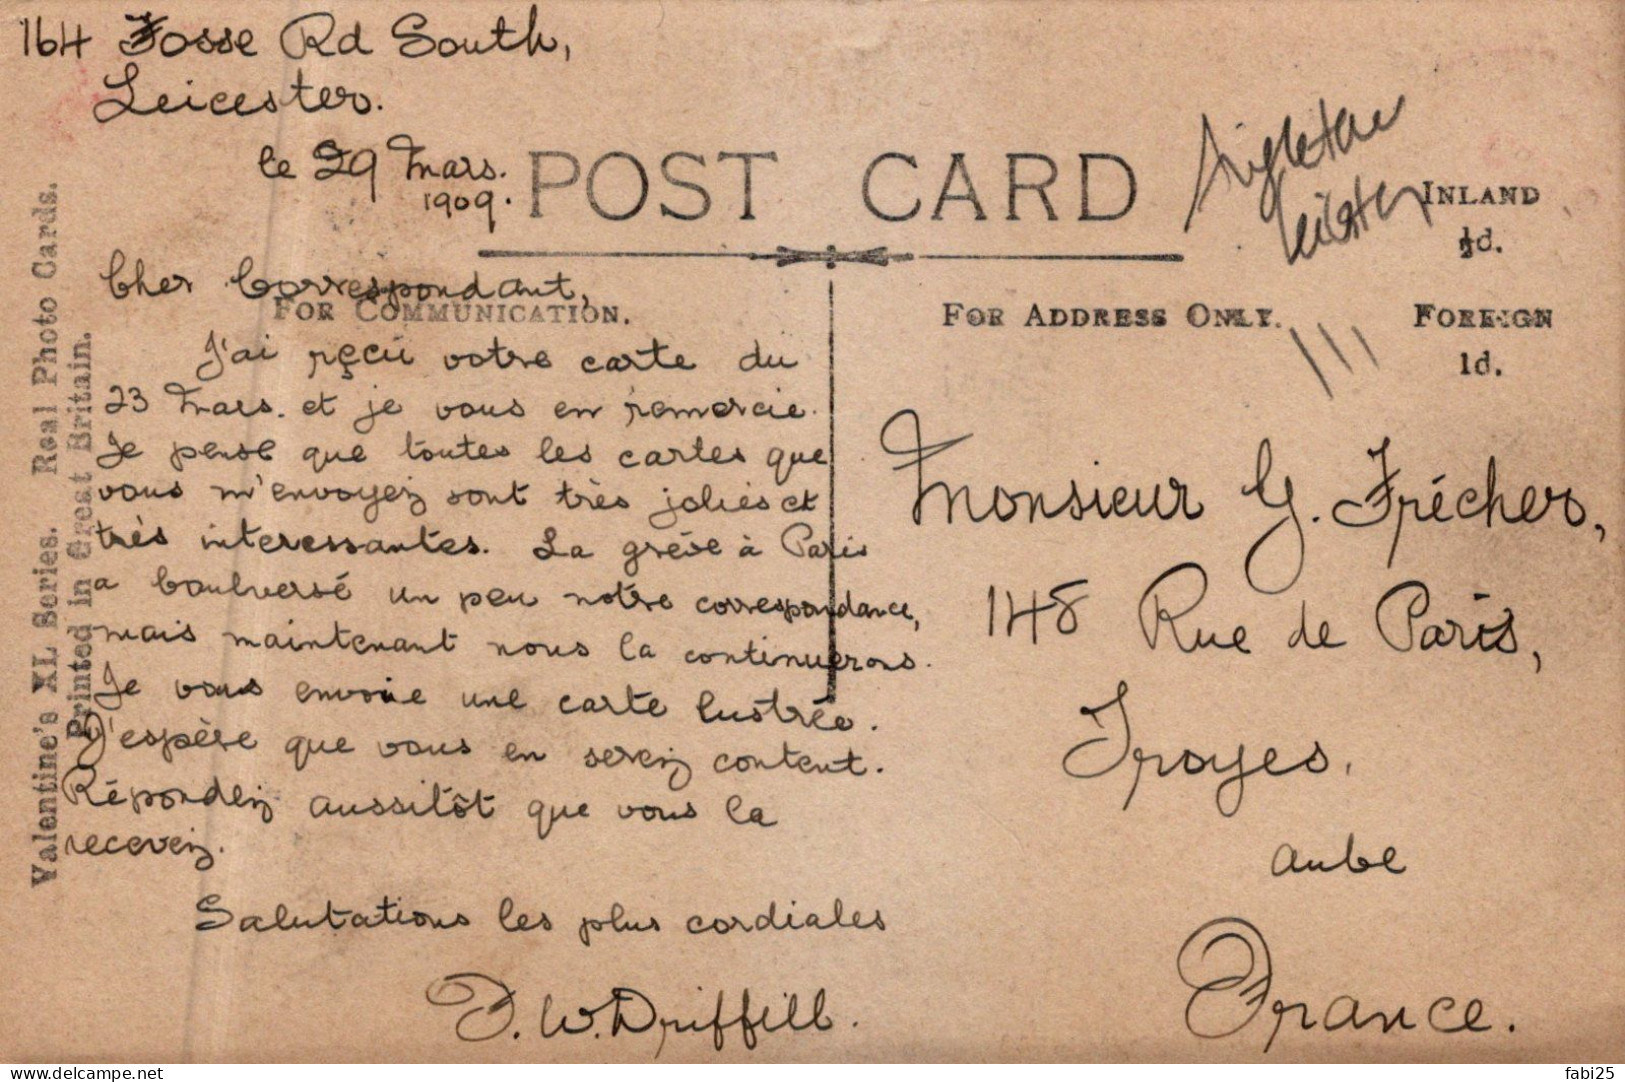 164 Fosse Rd South,
Leicester.
le 29 Mars.
1909.
POST CARD
Leicester
INLAND
½d.
Cher Correspondant,
FOR COMMUNICATION.
FOR ADDRESS ONLY.
FOREIGN
1d.
J'ai reçu votre carte du
23 Mars. et je vous en remercie.
Je pense que toutes les cartes que
vous m'envoyez sont très jolies et
très interessantes. La grève à Paris
a boulversé un peu notre correspondance,
mais maintenant nous la continuerons.
Je vous envoie une carte lustrée.
J'espère que vous en serez content.
Répondez aussitôt que vous la
recevez.
Salutations les plus cordiales
F. W. Driffill.
Monsieur G. Frécher,
148 Rue de Paris,
Troyes.
Aube
France.
Valentine's XL Series. Real Photo Cards.
Printed in Great Britain.
fabi25